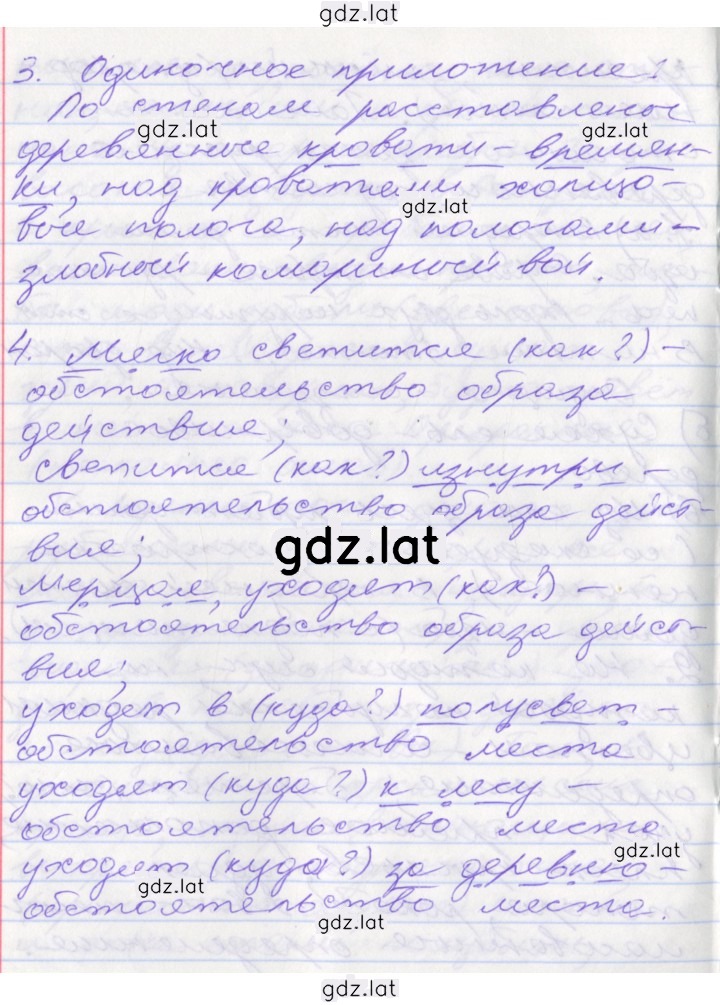 gdz.lat
3. Одиночное приложение:
По стенам расставлены
gdz.lat
gdz.lat
деревянные кровати-времян-
ки, над кроватями холщо-
gdz.lat
вые полога, над пологами-
злобный комариный вой.
4. Мягко светится (как?) -
обстоятельство образа
действия;
светится (как?) изнутри -
обстоятельство образа дейст-
вия;
gdz.lat
мерцая, уходят (как?) -
обстоятельство образа дейст-
вия;
уходят в (куда?) полусвет -
обстоятельство места
уходят (куда?) к лесу -
обстоятельство места
gdz.lat
уходят (куда?) за деревню-
gdz.lat
обстоятельство места.
gdz.lat
gdz.lat